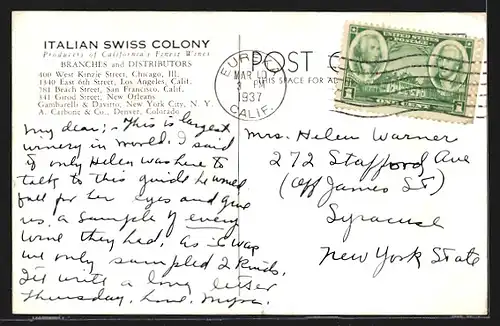 ITALIAN SWISS COLONY
Producers of California's Finest Wines
BRANCHES and DISTRIBUTORS
400 West Kinzie Street, Chicago, Ill.
1340 East 6th Street, Los Angeles, Calif.
781 Beach Street, San Francisco, Calif.
841 Girod Street, New Orleans
Gambarelli & Davitto, New York City, N. Y.
A. Carbone & Co., Denver, Colorado
My dear; - This is largest
winery in world. I said
if only Helen was here to
talk to this guide he would
fall for her eyes and give
us a sample of every
wine they had. As it was
we only sampled 2 kinds.
I'll write a long letter
Thursday. Love. Myra.
POST C
THIS SPACE FOR AD
EUREKA
MAR 10
3 PM
1937
CALIF.
Mrs. Helen Warner
272 Stafford Ave
(Off James St)
Syracuse
New York State